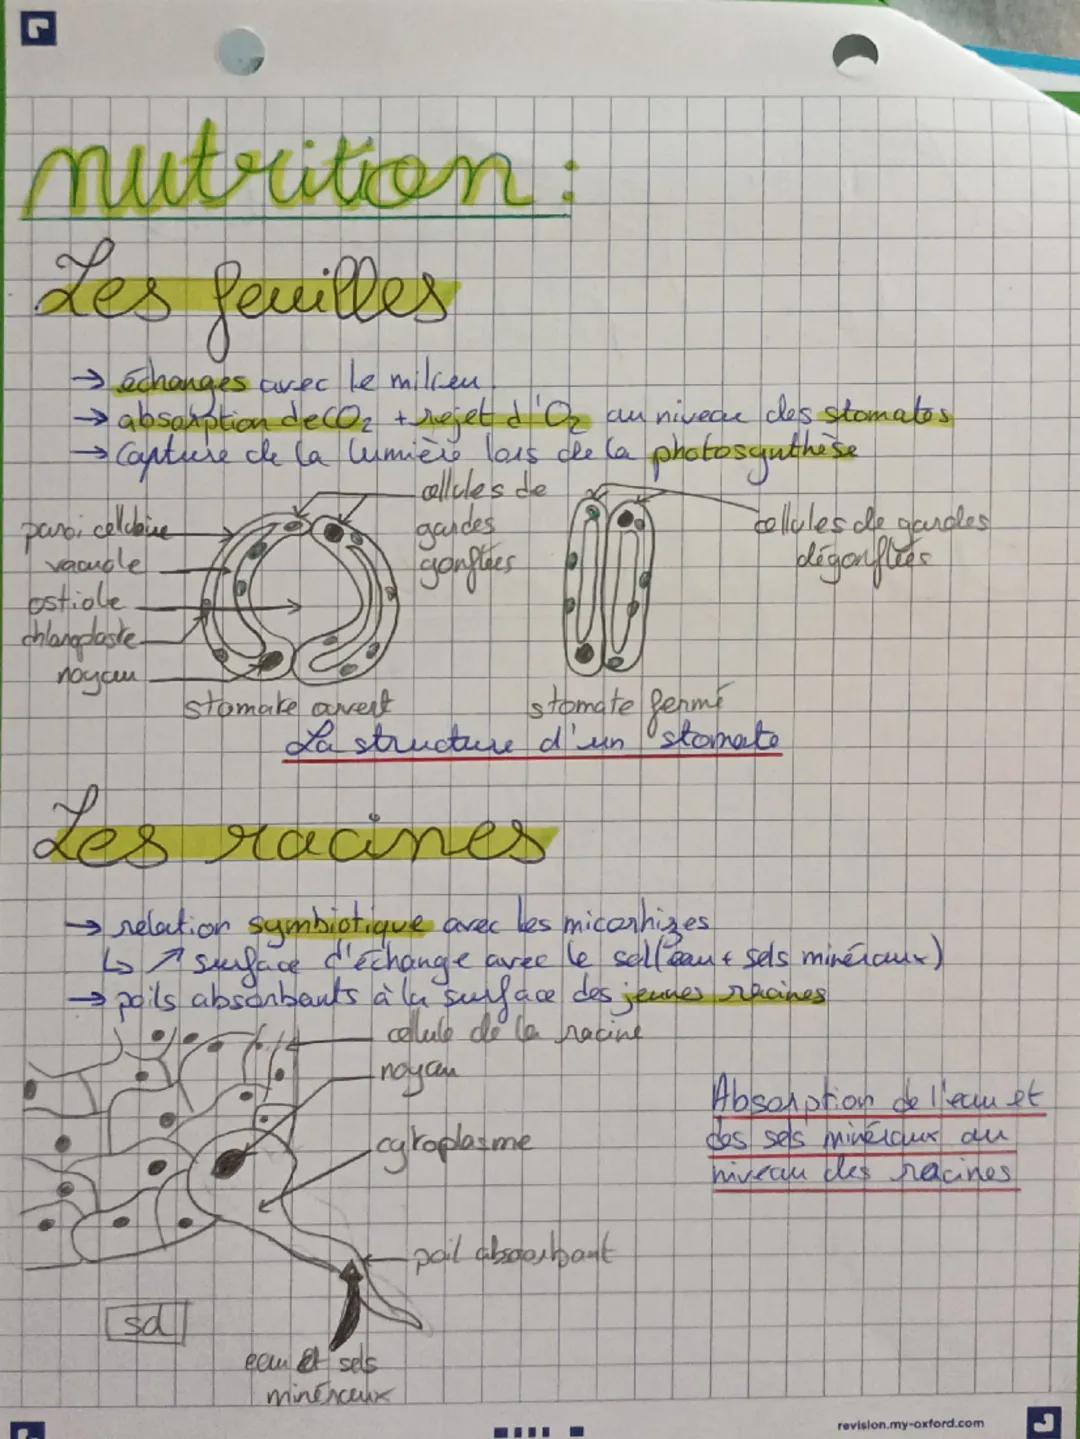 nutrition :
Les feuilles
→ échanges avec le milieu.
→ absorption de CO2 + rejet d'O2 au niveau des stomates
→ Capture de la lumière lors de la photosynthèse
cellules de
gardes
gonflées
paroi cellulaire
vacuole
ostiole
chloroplaste
noyau
cellules de gardes
dégonflées
stomate ouvert
stomate fermé
La structure d'un stomate
Les racines
→ relation symbiotique avec les micorhizes
↳ ↗ surface d'échange avec le sol (eau + sels minéraux)
→ poils absorbants à la surface des jeunes racines
cellule de la racine
noyau
cytoplasme
poil absorbant
Absorption de l'eau et
des sels minéraux au
niveau des racines
sol
eau et sels
minéraux
revision.my-oxford.com